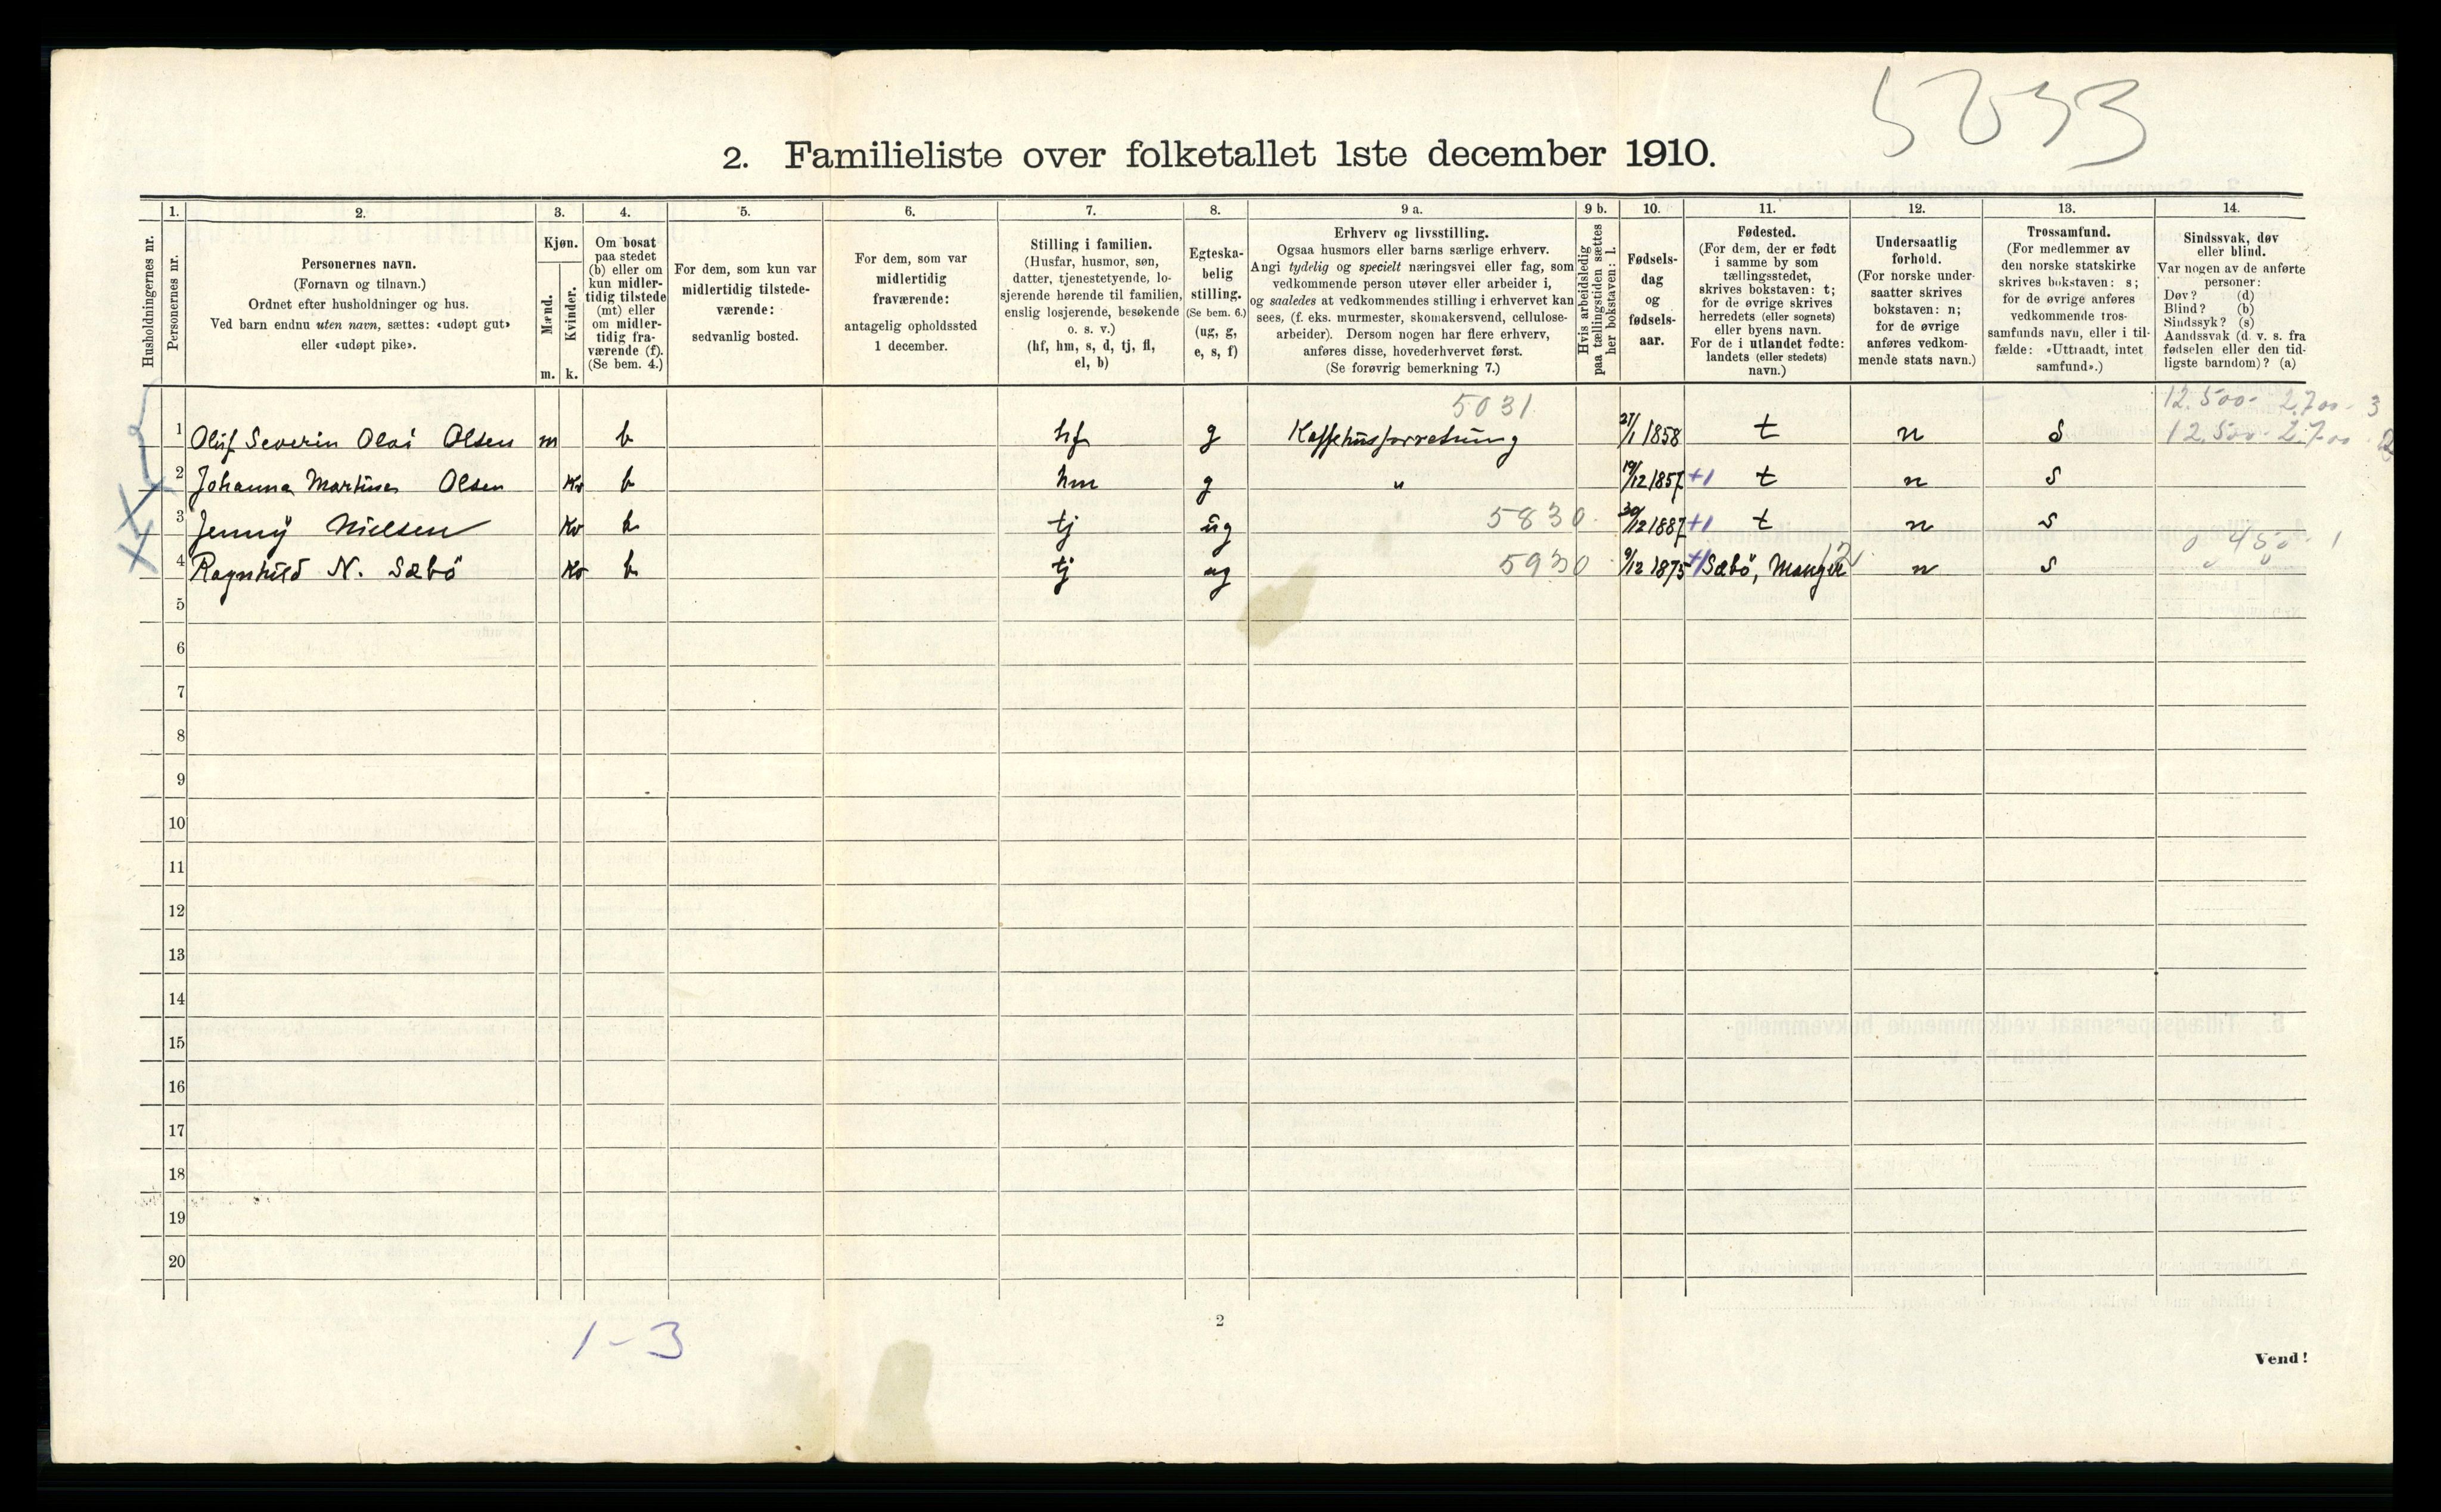 5033
2. Familieliste over folketallet 1ste december 1910.
Husholdningernes nr.
1. Personernes nr.
2. Personernes navn.
(Fornavn og tilnavn.)
Ordnet efter husholdninger og hus.
Ved barn endnu uten navn, sættes: «udøpt gut»
eller «udøpt pike».
3. Kjøn.
Mænd. m.
Kvinder. k.
4. Om bosat
paa stedet
(b) eller om
kun midler-
tidig tilstede
(mt) eller
om midler-
tidig fra-
værende (f).
(Se bem. 4.)
5. For dem, som kun var
midlertidig tilstede-
værende:
sedvanlig bosted.
6. For dem, som var
midlertidig
fraværende:
antagelig opholdssted
1 december.
7. Stilling i familien.
(Husfar, husmor, søn,
datter, tjenestetyende, lo-
sjerende hørende til familien,
enslig losjerende, besøkende
o. s. v.)
(hf, hm, s, d, tj, fl,
el, b)
8. Egteska-
belig
stilling.
(Se bem. 6.)
(ug, g,
e, s, f)
9 a. Erhverv og livsstilling.
Ogsaa husmors eller barns særlige erhverv.
Angi tydelig og specielt næringsvei eller fag, som
vedkommende person utøver eller arbeider i,
og saaledes at vedkommendes stilling i erhvervet kan
sees, (f. eks. murmester, skomakersvend, cellulose-
arbeider). Dersom nogen har flere erhverv,
anføres disse, hovederhvervet først.
(Se forøvrig bemerkning 7.)
9 b. Hvis arbeidsledig
paa tællingstiden sættes
her bokstaven: l.
10. Fødsels-
dag
og
fødsels-
aar.
11. Fødested.
(For dem, der er født
i samme by som
tællingsstedet,
skrives bokstaven: t;
for de øvrige skrives
herredets (eller sognets)
eller byens navn.
For de i utlandet fødte:
landets (eller stedets)
navn.)
12. Undersaatlig
forhold.
(For norske under-
saatter skrives
bokstaven: n;
for de øvrige
anføres vedkom-
mende stats navn.)
13. Trossamfund.
(For medlemmer av
den norske statskirke
skrives bokstaven: s;
for de øvrige anføres
vedkommende tros-
samfunds navn, eller i til-
fælde: «Uttraadt, intet
samfund».)
14. Sindssvak, døv
eller blind.
Var nogen av de anførte
personer:
Døv? (d)
Blind? (b)
Sindssyk? (s)
Aandssvak (d. v. s. fra
fødselen eller den tid-
ligste barndom)? (a)
5031 12.500- 2.700- 3
1 Oluf Severin Olai Olsen m b hf g Kaffehusforretning 27/1 1858 t n s 12.500- 2.700-
2 Johanna Martine Olsen kv b hm g " 19/12 1857 +1 t n s
3 Jenny Nielsen kv b tj ug 5830 30/12 1887 +1 t n s
450- 1
4 Ragnhild N. Sæbö kv b tj ug 5930 9/12 1875 +1 Sæbö, Manger 12 n s
5
6
7
8
9
10
11
12
13
14
15
16
17
18
19
20
1-3
2
Vend!